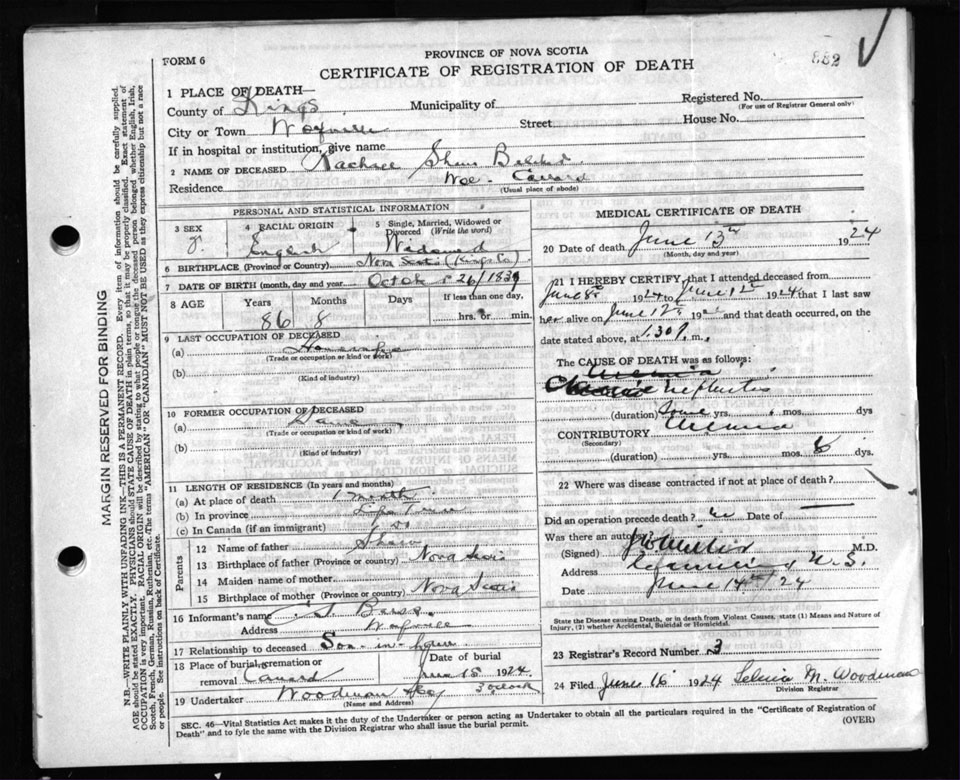 PROVINCE OF NOVA SCOTIA
FORM 6
CERTIFICATE OF REGISTRATION OF DEATH
882
1 PLACE OF DEATH—
County of Kings Municipality of
Registered No.
(For use of Registrar General only)
City or Town Street House No.
If in hospital or institution, give name
2 NAME OF DECEASED Rachael
Residence Canard
(Usual place of abode)
PERSONAL AND STATISTICAL INFORMATION
3 SEX 4 RACIAL ORIGIN 5 Single, Married, Widowed or Divorced (Write the word)
English Widowed
6 BIRTHPLACE (Province or Country) Nova Scotia (Kings Co)
7 DATE OF BIRTH (month, day and year) 26/1839
8 AGE Years Months Days If less than one day,
86 8 hrs. or min.
9 LAST OCCUPATION OF DECEASED
(a)
(Trade or occupation or kind of work)
(b)
(Kind of industry)
10 FORMER OCCUPATION OF DECEASED
(a)
(Trade or occupation or kind of work)
(b)
(Kind of industry)
11 LENGTH OF RESIDENCE (In years and months)
(a) At place of death 1 month
(b) In province Life Time
(c) In Canada (if an immigrant) do
Parents
12 Name of father Shaw
13 Birthplace of father (Province or country) Nova Scotia
14 Maiden name of mother
15 Birthplace of mother (Province or country) Nova Scotia
16 Informant's name
Address
17 Relationship to deceased Son-in-law
18 Place of burial, cremation or removal Canard Date of burial June 15 1924
3 oclock
19 Undertaker Woodman
(Name and Address)
MEDICAL CERTIFICATE OF DEATH
20 Date of death June 13th 1924
(Month, day and year)
21 I HEREBY CERTIFY that I attended deceased from
June 8 1924 to June 1924 that I last saw
her alive on June 12 19 and that death occurred, on the
date stated above, at 1.30 P. m.,
The CAUSE OF DEATH was as follows:
Uremia
Chronic nephritis
(duration) Some yrs. mos. dys
CONTRIBUTORY Uremia
(Secondary)
(duration) yrs. mos. 6 dys.
22 Where was disease contracted if not at place of death?
Did an operation precede death? no Date of
Was there an autopsy
(Signed) M.D.
Address N.S.
Date June 14th/24
State the Disease causing Death, or in death from Violent Causes, state (1) Means and Nature of
Injury, (2) whether Accidental, Suicidal or Homicidal.
23 Registrar's Record Number 3
24 Filed June 16 1924 M. Woodman
Division Registrar
SEC. 46—Vital Statistics Act makes it the duty of the Undertaker or person acting as Undertaker to obtain all the particulars required in the "Certificate of Registration of
Death" and to fyle the same with the Division Registrar who shall issue the burial permit.
(OVER)
MARGIN RESERVED FOR BINDING
N.B.—WRITE PLAINLY WITH UNFADING INK—THIS IS A PERMANENT RECORD. Every item of information should be carefully supplied.
AGE should be stated EXACTLY. PHYSICIANS should STATE CAUSE OF DEATH in plain terms, so that it may be properly classified. Exact statement of
OCCUPATION is very important. RACIAL ORIGIN will be described by stating to what people or tongue the deceased person belonged whether English, Irish,
Scotch, French, German, Russian, Ruthenian, etc. The terms "AMERICAN" OR "CANADIAN" MUST NOT BE USED as they express citizenship but not a race
or people. See instructions on back of Certificate.